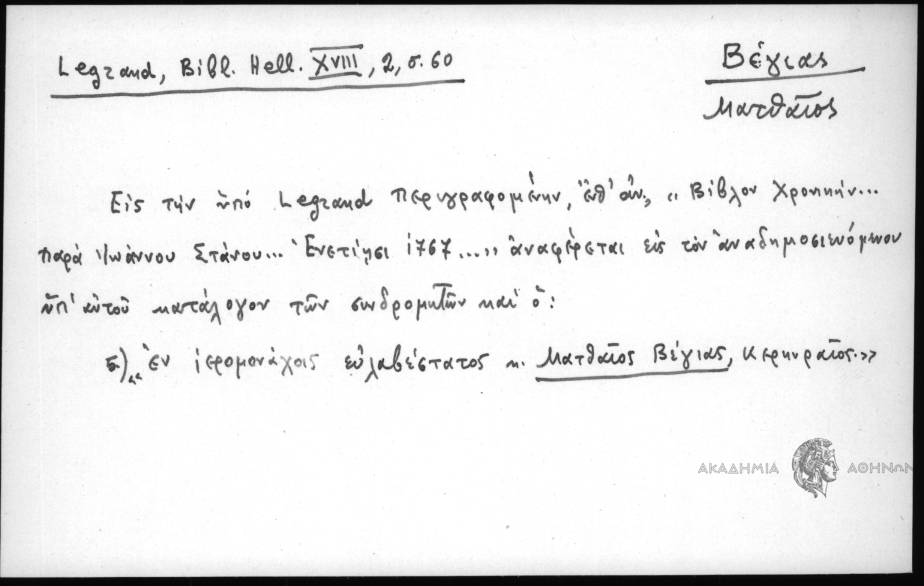 Legrand, Bibl. Hell. XVIII, 2, σ. 60
Βέγιας
Ματθαῖος
Εἰς τὴν ὑπό Legrand περιγραφομένην, ἐνθ' ἀν., "Βίβλον Χρονικήν...
παρά Ἰωάννου Στάνου... Ἐνετίησι 1767...," ἀναφέρεται εἰς τὸν ἀναδημοσιευόμενον
ὑπ' αὐτοῦ κατάλογον τῶν συνδρομητῶν καί ὁ:
5.) «Ἐν ἱερομονάχοις εὐλαβέστατος κ. Ματθαῖος Βέγιας, Κερκυραῖος.»
ΑΚΑΔΗΜΙΑ ΑΘΗΝΩΝ